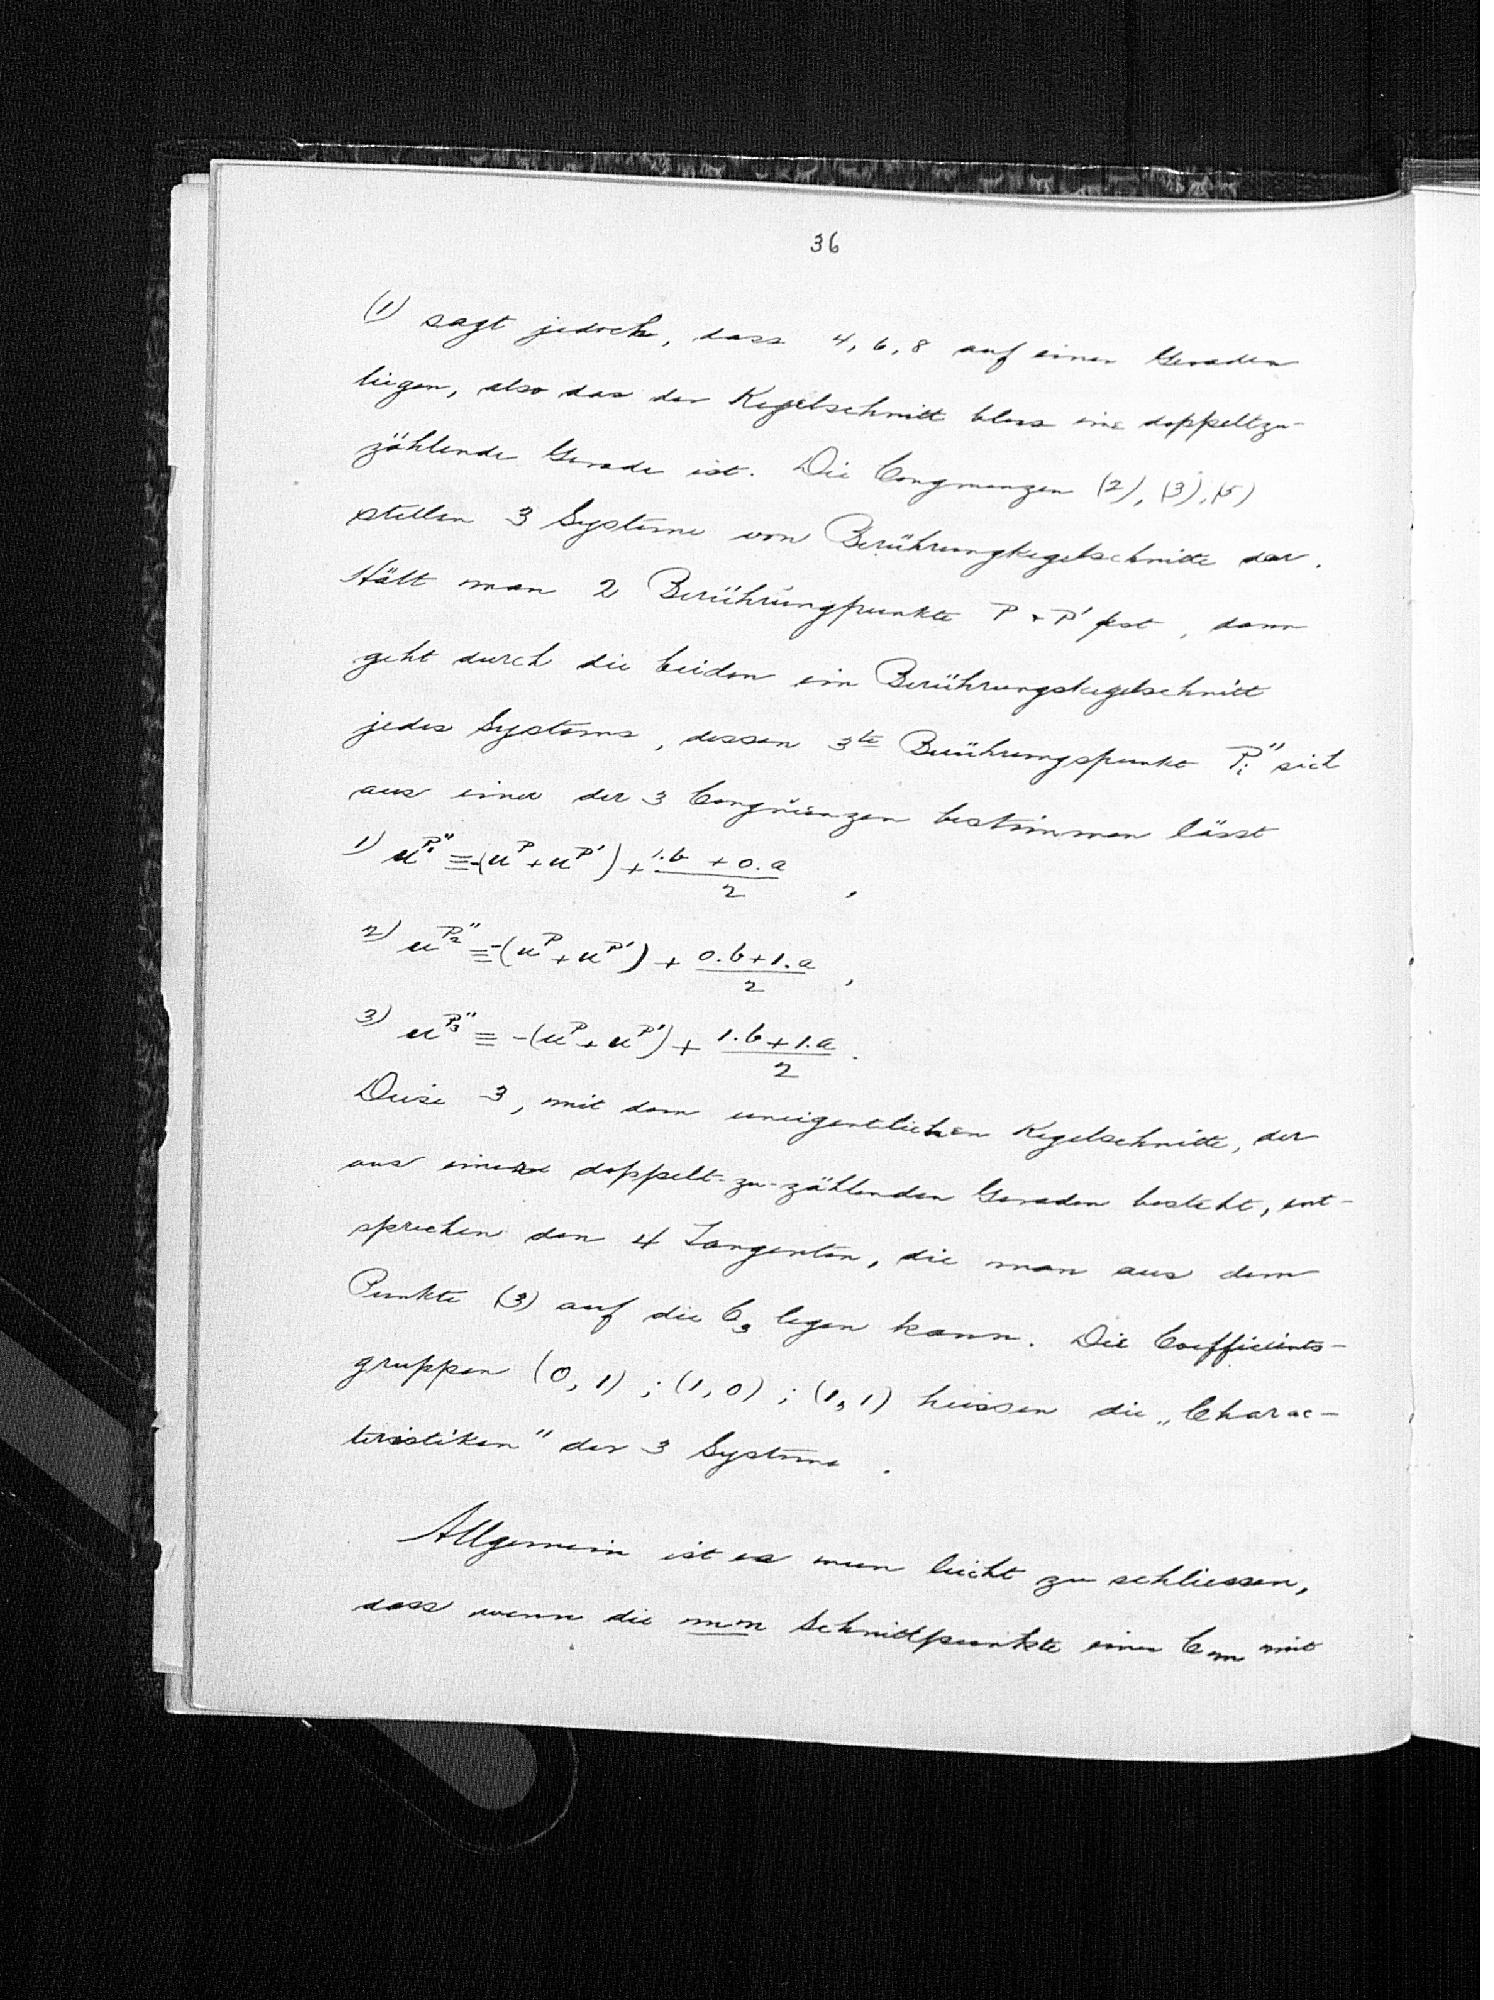 36
(1) sagt jedoch, dass 4, 6, 8 auf einer Geraden
liegen, also das der Kegelschnitt blos eine doppeltzu-
zählende Gerade ist. Die Congruenzen (2), (3), (5)
stellen 3 Systeme von Berührungkegelschnitte dar.
Hält man 2 Berührungpunkte P + P' fest, dann
geht durch die beiden ein Berührungskegelschnitt
jedes Systems, dessen 3te Berührungspunkt Pᵢ'' sich
aus einer der 3 Congruenzen bestimmen lässt
1) u^{P₁''} ≡ -(u^P + u^{P'}) + (1.b + 0.a)/2 ,
2) u^{P₂''} ≡ -(u^P + u^{P'}) + (0.b + 1.a)/2 ,
3) u^{P₃''} ≡ -(u^P + u^{P'}) + (1.b + 1.a)/2 .
Diese 3, mit dem uneigentlichen Kegelschnitte, der
aus einer doppelt-zu-zählenden Geraden besteht, ent-
sprechen den 4 Tangenten, die man aus dem
Punkte (3) auf die C₃ legen kann. Die Coefficients-
gruppen (0, 1) ; (1, 0) ; (1, 1) heissen die „Charac-
teristiken" der 3 Systeme .
Allgemein ist es nun leicht zu schliessen,
dass wenn die mn Schnittpunkte einer Cm mit